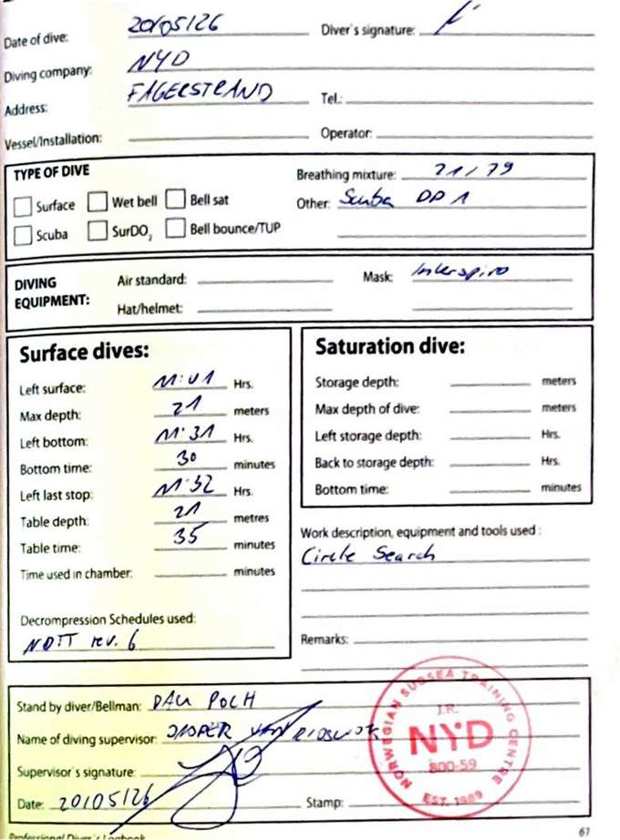 Date of dive: 20/05/26 Diver's signature:
Diving company: NYD
Address: FAGERSTRAND Tel.:
Vessel/Installation: Operator:
TYPE OF DIVE
Breathing mixture: 21/79
Surface Wet bell Bell sat
Other: Scuba DP 1
Scuba SurDO2 Bell bounce/TUP
DIVING EQUIPMENT:
Air standard: Mask: Interspiro
Hat/helmet:
Surface dives:
Left surface: 11:01 Hrs.
Max depth: 21 meters
Left bottom: 11:31 Hrs.
Bottom time: 30 minutes
Left last stop: 11:32 Hrs.
Table depth: 21 metres
Table time: 35 minutes
Time used in chamber: minutes
Decrompression Schedules used:
NDTT rev. 6
Saturation dive:
Storage depth: meters
Max depth of dive: meters
Left storage depth: Hrs.
Back to storage depth: Hrs.
Bottom time: minutes
Work description, equipment and tools used :
Circle Search
Remarks:
Stand by diver/Bellman: PAU POCH
Name of diving supervisor: JASPER VAN
Supervisor's signature:
Date: 20/05/26 Stamp:
NORWEGIAN SUBSEA TRAINING CENTRE
J.R.
NYD
800-59
EST. 1989
Professional Diver's Logbook
61